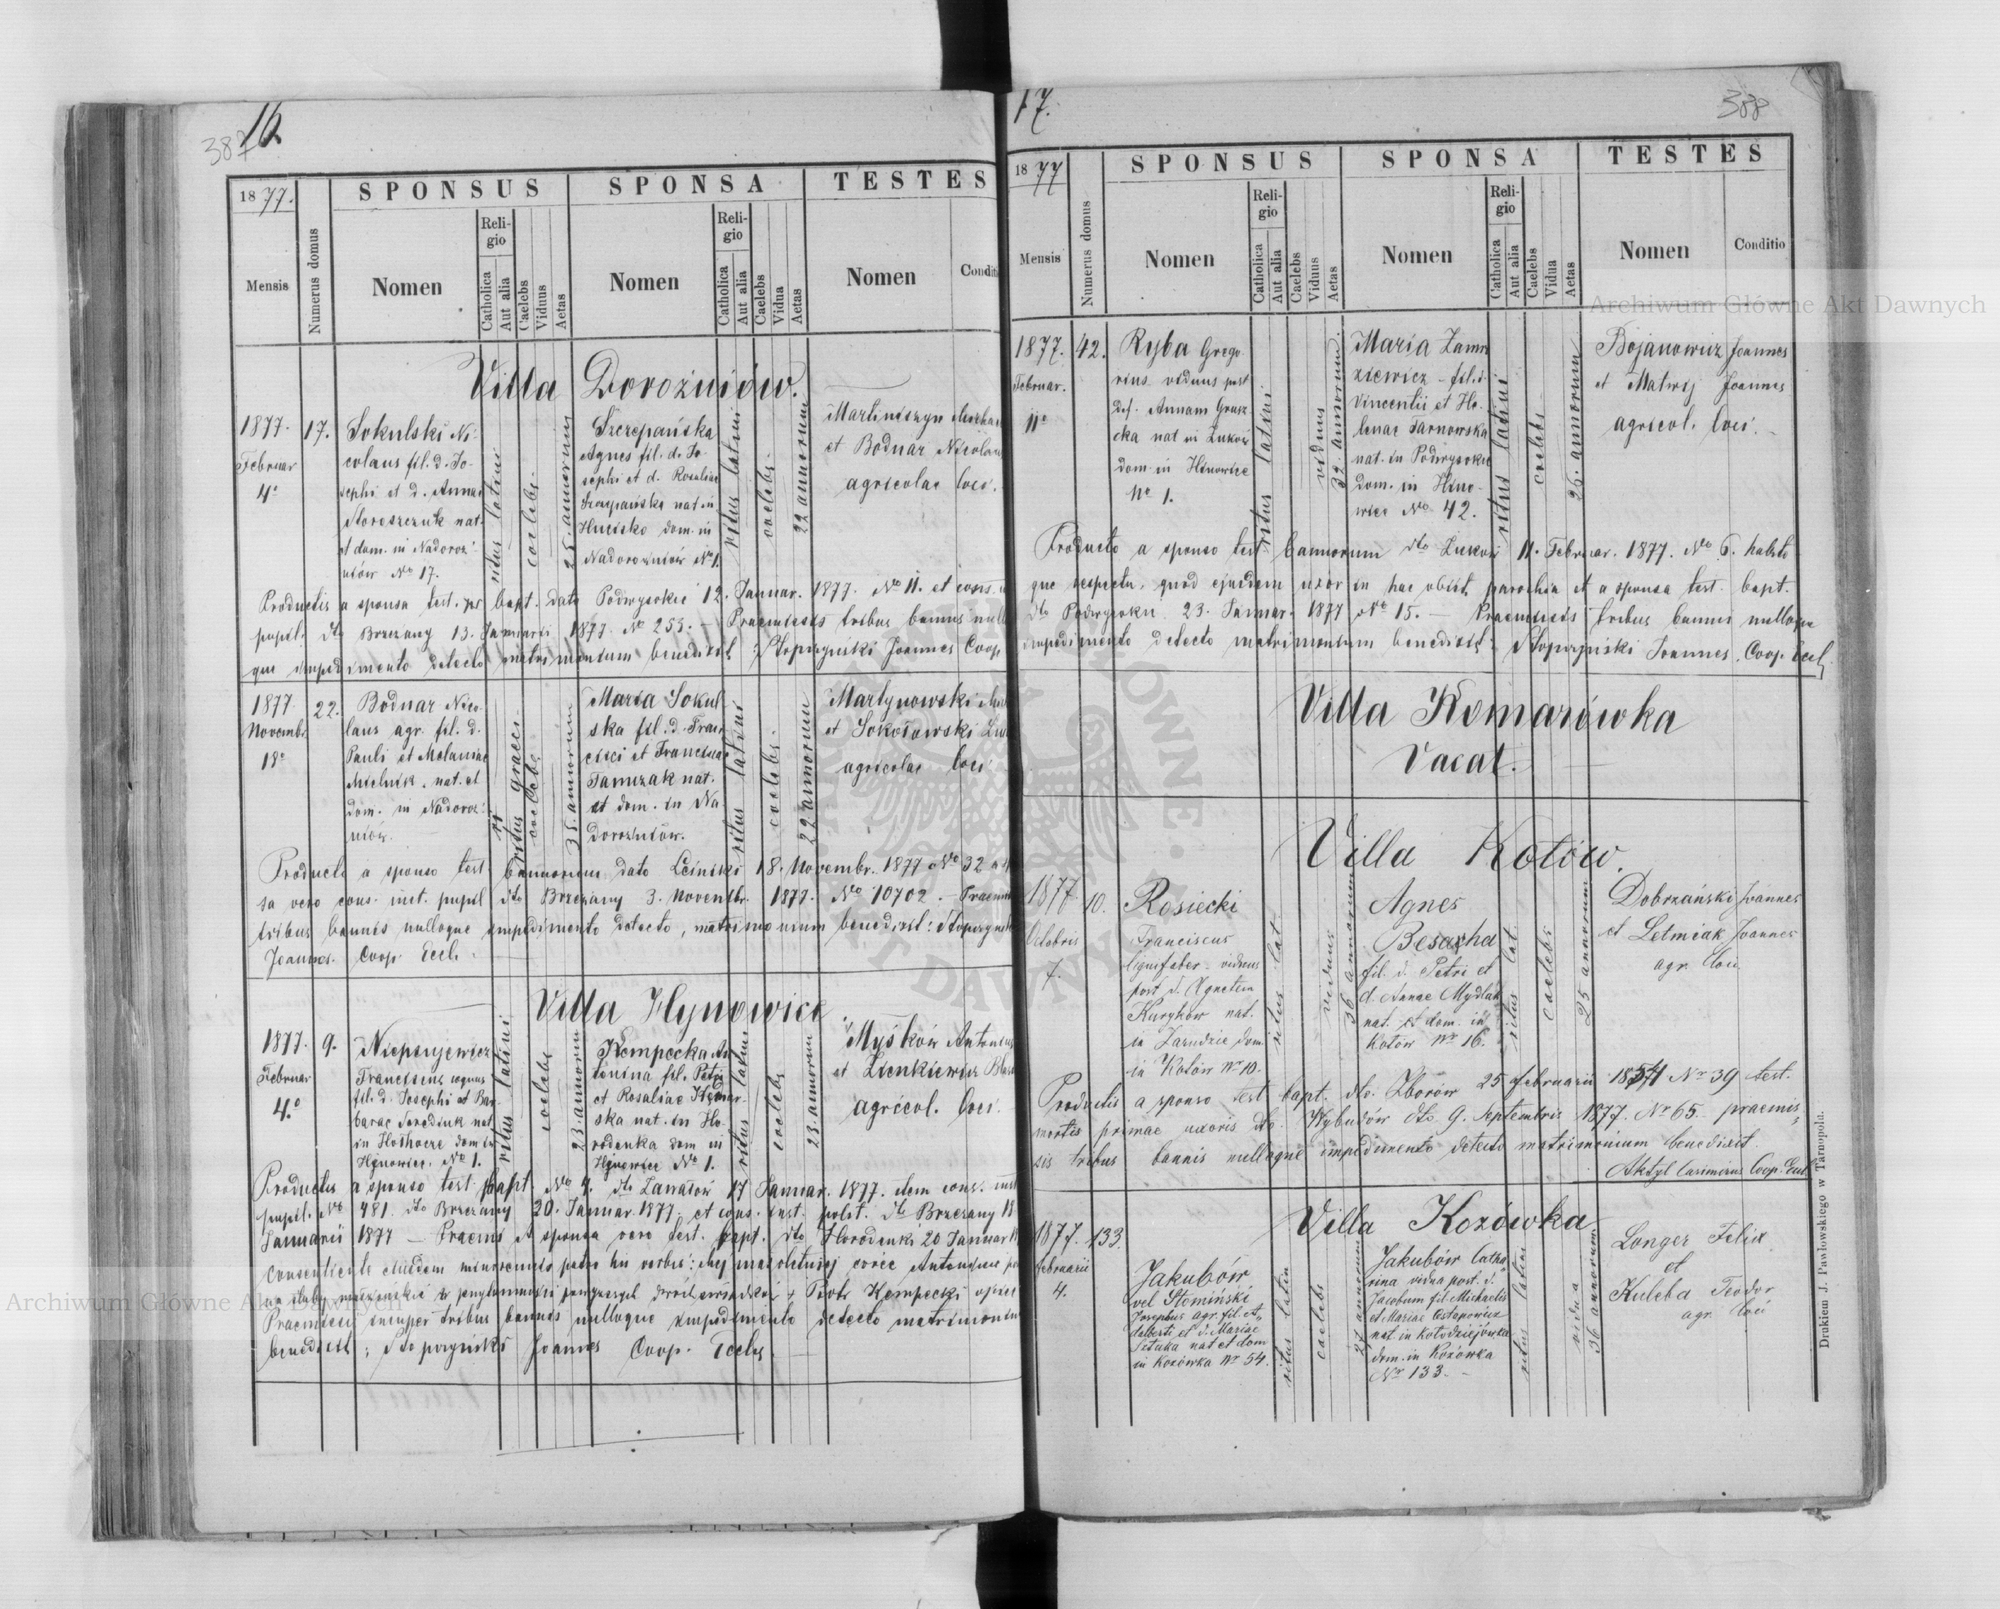 387
16
1877.
SPONSUS
SPONSA
TESTES
Mensis
Numerus domus
Nomen
Religio
Catholica
Aut alia
Caelebs
Viduus
Aetas
Nomen
Religio
Catholica
Aut alia
Caelebs
Vidua
Aetas
Nomen
Conditi
Villa Dorożniów.
1877.
Februar
4°
17.
Sokulski Ni-
colaus fil. d. Jo-
sephi et d. Annae
nat.
et dom. in Nadoroż
niów No 17.
ritus latini
coelebs
25 annorum
Szczepańska
Agnes fil. d. Jo-
sephi et d. Rosaliae
Szczepańska nat. in
Hucisko dom. in
Nadorożniów No 1.
ritus latini
coelebs
22 annorum
Martiniszyn
et Bodnar Nicola
agricolae loci.
Productis a sponsa test. bapt. dato Podwysokie 12. Januar. 1877. No 11. et cons.
pupil. dto Brzeżany 13. Januarii 1877 No 255. – Praemissis tribus bannis nullo
que impedimento detecto matrimonium benedixit. Stopczyński Joannes Coop.
1877
Novembr.
18°
22.
Bodnar Nico-
laus agr. fil. d.
Pauli et Melaniae
Mielnik, nat. et
dom. in Nadoroż
niów.
ritus graeci
coelebs
35 annorum
Maria Sokul-
ska fil. d. Fran
cisci et Franciscae
Tamczak nat.
et dom. in Na
dorożniów.
ritus latini
coelebs
22 annorum
Martynowski
et Sokołowski
agricolae loci
Producto a sponso test. bannorum dato 18. Novembr. 1877 No 32
sa vero cons. inst. pupil dto Brzeżany 3. Novembr. 1877. No 10702. –
tribus bannis nulloque impedimento detecto, matrimonium benedixit:
Joannes. Coop. Eccl.
Villa Hynowice
1877.
Februar
4.°
9.
Franciscus
fil. d. Josephi et Bar
barae nat
in dom in
Hynowice. No 1.
ritus latini
coelebs
23 annorum
Kempecka An
tonina fil. Petri
et Rosaliae
ska nat. in Ho-
rodenka dom in
Hynowice No 1.
ritus latini
coelebs
23 annorum
Myśków Antonius
et Zienkiewicz
agricol. loci.
Productis a sponso test. bapt. No 4. dto 17 Januar. 1877. item cons. inst
pupil. No 481. dto Brzeżany 20. Januar. 1877. et cons. inst. polit. dto Brzeżany 18
Januarii 1877 – a sponsa vero test. bapt. dto Horodenki 20 Januar
consentiente ejusdem minorennis patre his verbis: Mej małoletniej córce Antoninie
Piotr Kempecki ojciec
Praemissis insuper tribus bannis nulloque impedimento detecto matrimonium
benedixit: Stopczyński Joannes Coop. Eccles.
17.
388
1877
SPONSUS
SPONSA
TESTES
Mensis
Numerus domus
Nomen
Religio
Catholica
Aut alia
Caelebs
Viduus
Aetas
Nomen
Religio
Catholica
Aut alia
Caelebs
Vidua
Aetas
Nomen
Conditio
1877.
Februar.
11°
42.
Ryba Grego-
rius viduus post
def. Annam Grusz
cka nat in Żuków
dom. in Hinowice
No 1.
ritus latini
viduus
32 annorum
Maria
fil.
Vincentii et He-
lenae Tarnowska
nat. in Podwysokie
dom. in Hino-
wice No 42.
ritus latini
coelebs
26. annorum
Bojanowicz Joannes
et Matwij Joannes
agricol. loci.
Producto a sponso test. bannorum dto Żuków 11. Februar. 1877. No 6.
que respectu, quod ejusdem uxor in hac obiit parochia et a sponsa test. bapt.
dto Podwysokie 23. Januar. 1877 No 15. – Praemissis tribus bannis nulloque
impedimento detecto matrimonium benedixit. Stopczyński Joannes, Coop. Eccl.
Villa Komarówka
Vacat.
Villa Kotów.
1877
Octobris
7.
10.
Rosiecki
Franciscus
lignifaber – viduus
post d. Agnetem
Kuryków nat.
in Zarudzie dom.
in Kotów No 10.
ritus lat
viduus
36 annorum
Agnes
Besacha
fil. d. Petri et
d. Annae Mydlak
nat. et dom. in
Kotów No 16.
ritus lat.
coelebs
25 annorum
Dobrzański Joannes
et Letniak Joannes
agr. loci
Productis a sponso test bapt. dto. Zborów 25 februarii No 39 test.
mortis primae uxoris dto. Wybudów dto 9. Septembris 1877. No 65. praemis-
sis tribus bannis nulloque impedimento detecto matrimonium benedixit.
Aktyl Casimirus Coop. Eccl.
Villa Kozówka
1877.
februarii
4.
133.
Jakubów
vel Słomiński
Josephus agr. fil. A-
dalberti et d. Mariae
Sztuka nat et dom
in Kozówka No 54.
ritus latin
caelebs
27 annorum
Jakubów Catha-
rina vidua post. d.
Jacobum fil. Michaelis
et Mariae Ostapowicz
nat in Kołodziejówka
dom. in Kozówka
No 133.
ritus latin
vidua
36 annorum
Longer Felix
et
Kuleba Teodor
agr. loci
Drukiem J. Pawłowskiego w Tarnopolu.
Archiwum Główne Akt Dawnych
Archiwum Główne Akt Dawnych